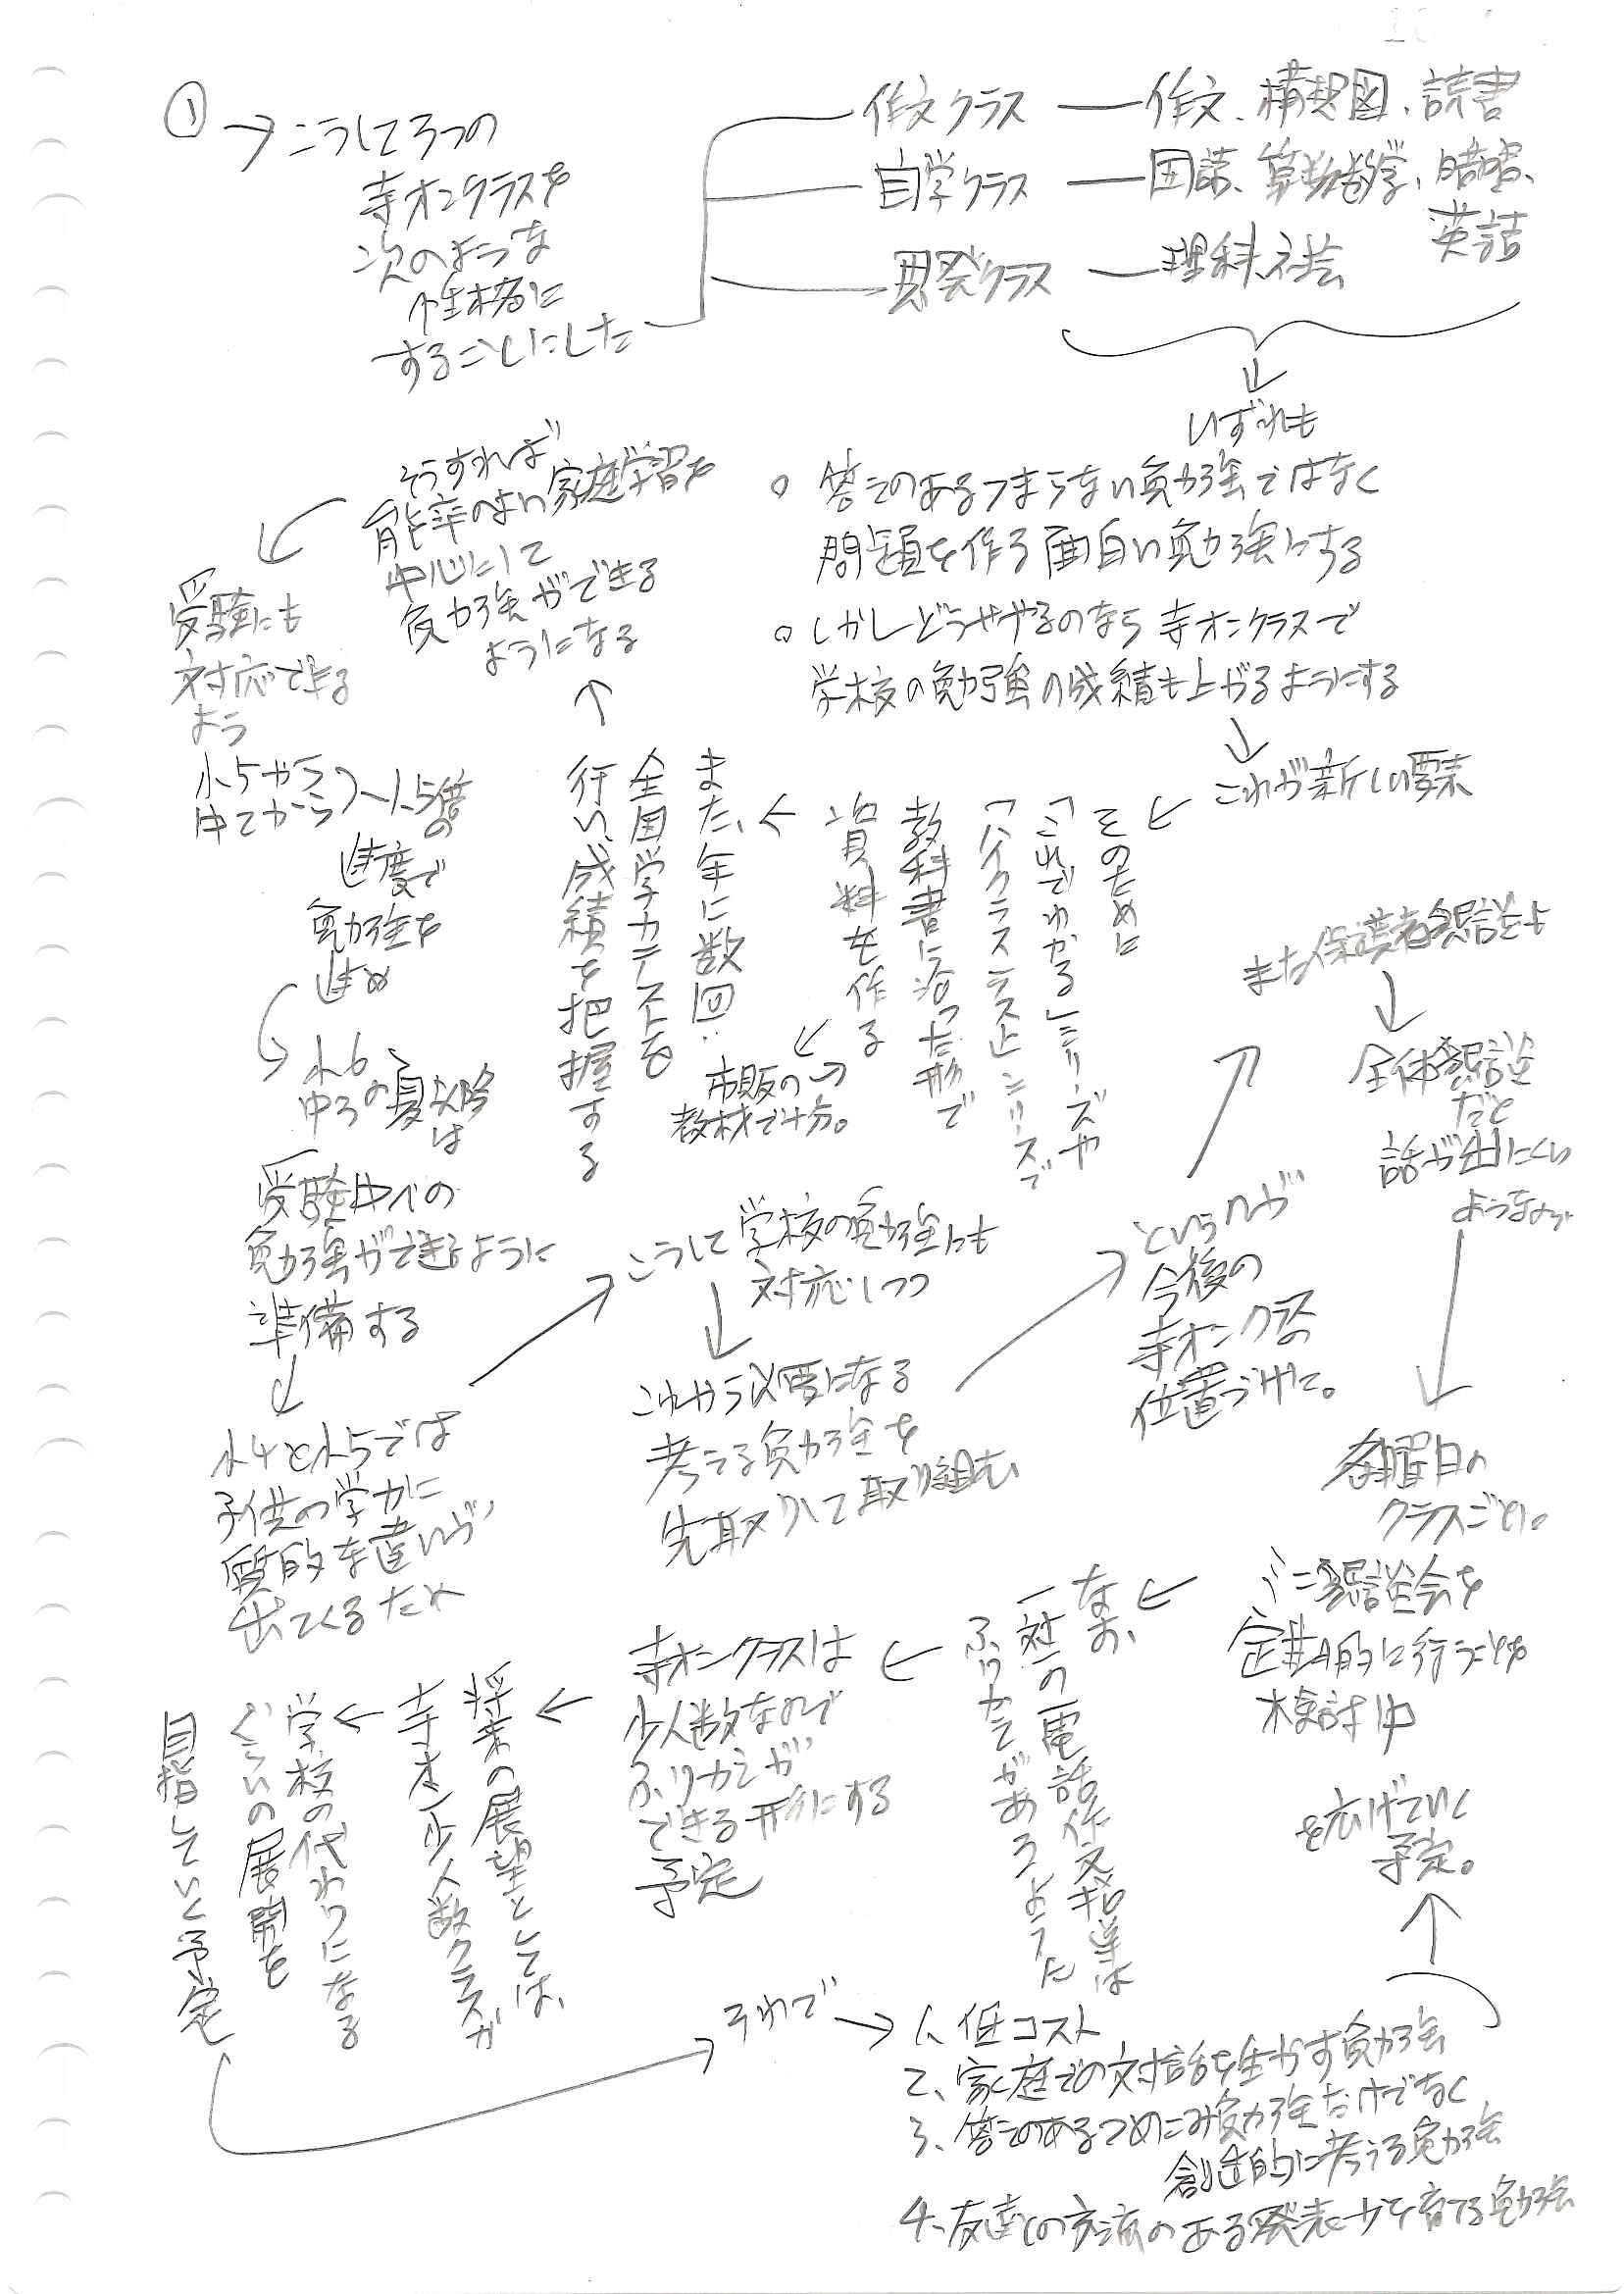 ①
→ こうして3つの
寺オンクラスを
次のような
性格に
することにした
作文クラス ― 作文、構想図、読書
自学クラス ― 国語、算数数学、暗唱、
英語
発クラス ― 理科、社会
いずれも
○ 答えのあるつまらない勉強ではなく
問題を作る面白い勉強にする
○ しかしどうせやるのなら寺オンクラスで
学校の勉強の成績も上がるようにする
これが新しい要素
そのために
「これでわかる」シリーズや
「ハイクラステスト」シリーズで
教科書に沿った形で
資料を作る
市販の
教材で十分。
また、年に数回
全国学力テストを
行い、成績を把握する
そうすれば
能率のよい家庭学習を
中心にして
勉強ができる
ようになる
受験にも
対応できる
よう
小5から
中2から 1.5倍の
進度で
勉強を
進め
小6、
中3の夏以降は
受験中心の
勉強ができるように
準備する
小4と小5では
子供の学力に
質的な違いが
出てくるため
こうして学校の勉強にも
対応しつつ
これから必要になる
考える勉強を
先取りして取り組む
というのが
今後の
寺オンクラスの
位置づけに。
また保護者懇談会も
全体懇談会
だと
話が出にくい
ようなので
各曜日の
クラスごとに。
ミニ懇談会を
定期的に行うことも
検討中
なお、
一対一の電話作文指導は
ふりかえがあるように
寺オンクラスは
少人数なので
ふりかえが
できる形にする
予定
将来の展望としては、
寺オン少人数クラスが
学校の代わりになる
ぐらいの展開を
目指していく予定
それで
1、低コスト
2、家庭での対話を生かす勉強
3、答えのあるつめこみ勉強だけでなく
創造的に考える勉強
4、友達との交流のある発表力を育てる勉強
を広げていく
予定。